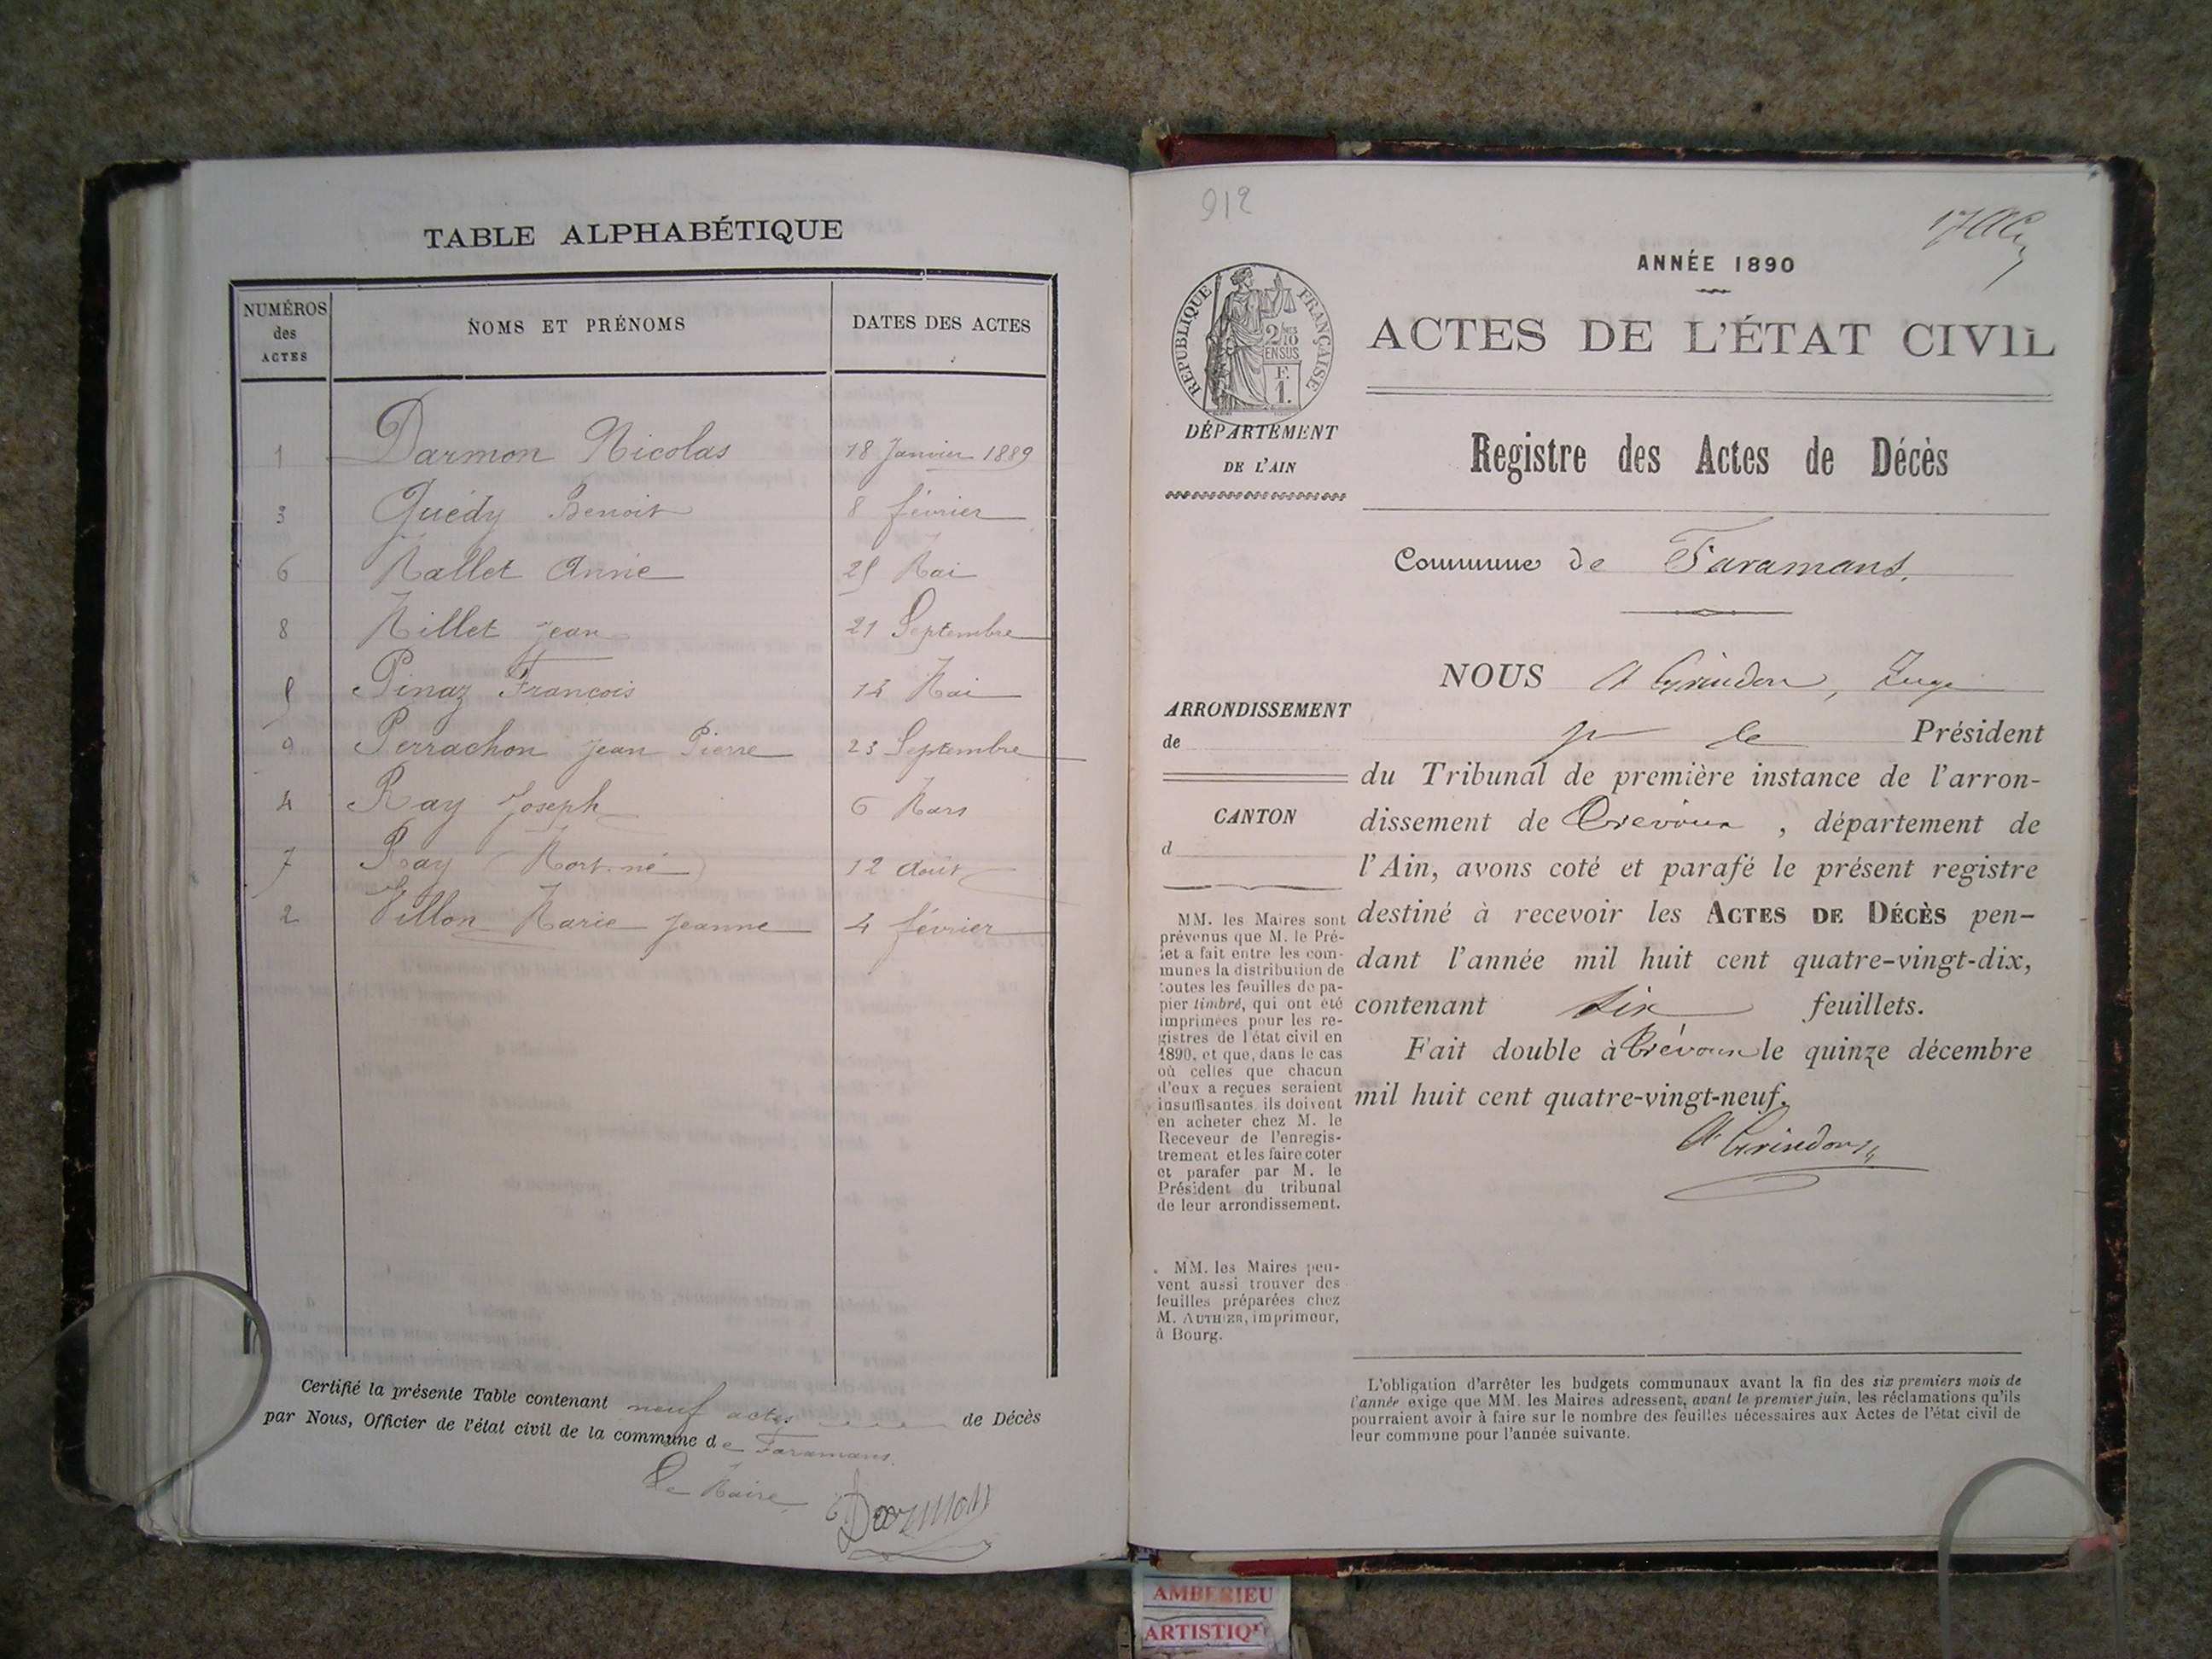 TABLE ALPHABÉTIQUE
NUMÉROS des ACTES NOMS ET PRÉNOMS DATES DES ACTES
1 Darmon Nicolas 18 Janvier 1889
3 Guédy Benoit 8 février
6 Mallet Annie 25 Mai
8 Millet Jean 21 Septembre
5 Pinaz François 14 Mai
9 Perrachon Jean Pierre 23 Septembre
4 Ray Joseph 6 Mars
7 Ray (Mort-né) 12 Août
2 Villon Marie Jeanne 4 février
Certifié la présente Table contenant neuf actes de Décès
par Nous, Officier de l'état civil de la commune de Faramans.
Le Maire
Darmon
912
ANNÉE 1890
RÉPUBLIQUE FRANÇAISE
2/10
EN SUS
F.
1.
ACTES DE L'ÉTAT CIVIL
DÉPARTEMENT
DE L'AIN
Registre des Actes de Décès
Commune de Faramans.
NOUS A Grindon, Juge
pr le Président
du Tribunal de première instance de l'arron-
dissement de Trévoux, département de
l'Ain, avons coté et parafé le présent registre
destiné à recevoir les ACTES DE DÉCÈS pen-
dant l'année mil huit cent quatre-vingt-dix,
contenant six feuillets.
Fait double à Trévoux le quinze décembre
mil huit cent quatre-vingt-neuf.
A Grindon
ARRONDISSEMENT
de
CANTON
d
MM. les Maires sont
prévenus que M. le Pré-
fet a fait entre les com-
munes la distribution de
toutes les feuilles de pa-
pier timbré, qui ont été
imprimées pour les re-
gistres de l'état civil en
1890, et que, dans le cas
où celles que chacun
d'eux a reçues seraient
insuffisantes, ils doivent
en acheter chez M. le
Receveur de l'enregis-
trement et les faire coter
et parafer par M. le
Président du tribunal
de leur arrondissement.
MM. les Maires peu-
vent aussi trouver des
feuilles préparées chez
M. AUTHIER, imprimeur,
à Bourg.
L'obligation d'arrêter les budgets communaux avant la fin des six premiers mois de
l'année exige que MM. les Maires adressent, avant le premier juin, les réclamations qu'ils
pourraient avoir à faire sur le nombre des feuilles nécessaires aux Actes de l'état civil de
leur commune pour l'année suivante.
AMBERIEU
ARTISTIQUE